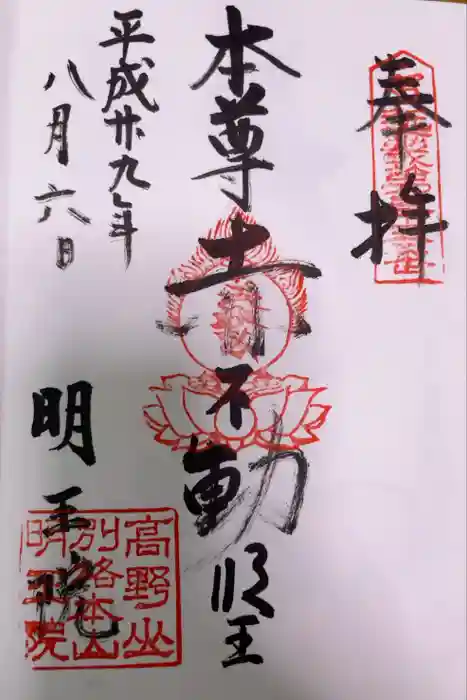 奉拝
本尊 青不動明王
平成廿九年
八月六日
明王院
高野山
別格本山
明王院